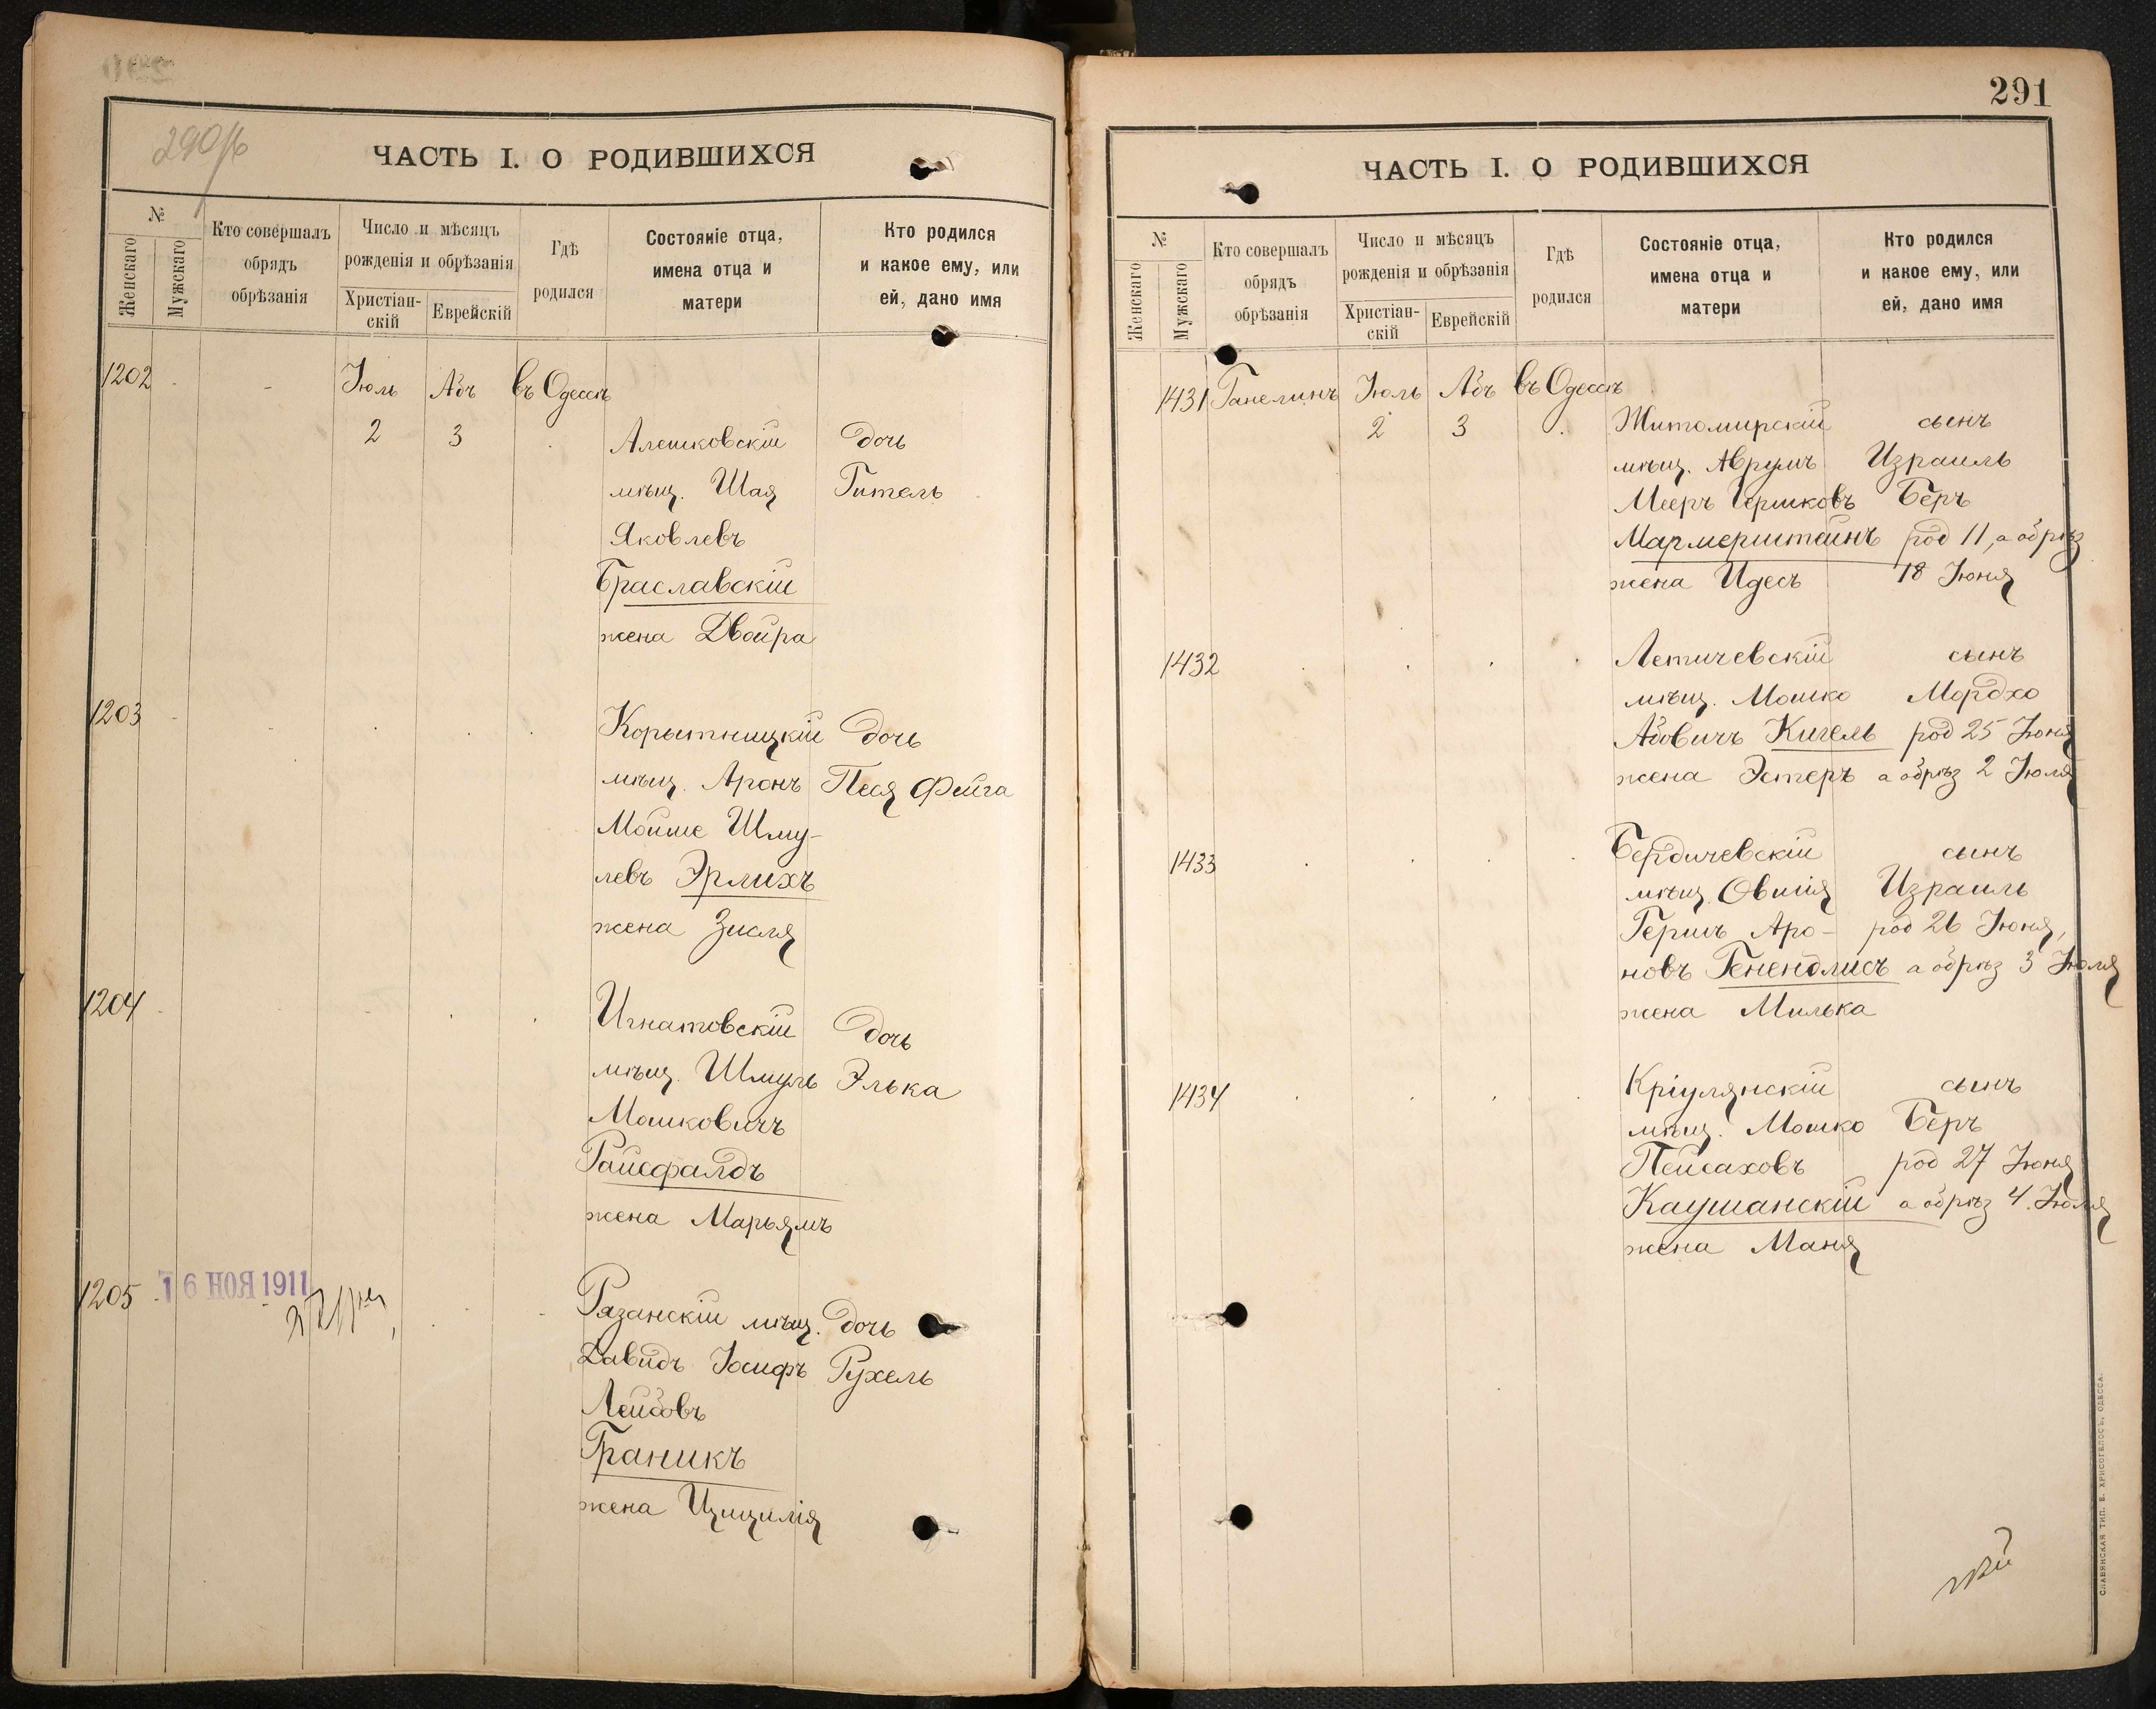 290/б
ЧАСТЬ I. О РОДИВШИХСЯ
№
Женскаго
Мужскаго
Кто совершалъ
обрядъ
обрѣзанія
Число и мѣсяцъ
рожденія и обрѣзанія
Христіан-
скій
Еврейскій
Гдѣ
родился
Состояніе отца,
имена отца и
матери
Кто родился
и какое ему, или
ей, дано имя
1202 - Іюль Абъ въ Одессѣ
2 3 Алешковскій дочь
мѣщ. Шая Гитель
Яковлевъ
Браславскій
жена Двойра
1203 Корытницкій дочь
мѣщ. Аронъ Песя Фейга
Мойше Шму-
левъ Эрлихъ
жена Зисля
1204 Игнатовскій дочь
мѣщ. Шмуль Элька
Мошковичъ
Райсфалдъ
жена Марьямъ
1205 16 НОЯ 1911 Рязанскій мѣщ. дочь
Давидъ Іосифъ Рухель
Лейбовъ
Граникъ
жена Цицилія
291
ЧАСТЬ I. О РОДИВШИХСЯ
№
Женскаго
Мужскаго
Кто совершалъ
обрядъ
обрѣзанія
Число и мѣсяцъ
рожденія и обрѣзанія
Христіан-
скій
Еврейскій
Гдѣ
родился
Состояніе отца,
имена отца и
матери
Кто родился
и какое ему, или
ей, дано имя
1431 Ганелинъ Іюль Абъ въ Одессѣ
2 3 Житомирскій сынъ
мѣщ. Аврумъ Израиль
Мееръ Гершковъ Беръ
Мармерштейнъ род 11, а обрѣз
жена Идесъ 18 Іюня
1432 Летичевскій сынъ
мѣщ. Мошко Мордхо
Абовичъ Кигель род 25 Іюня
жена Эстеръ а обрѣз 2 Іюля
1433 Бердичевскій сынъ
мѣщ Овшія Израиль
Гершъ Аро- род 26 Іюня,
новъ Генендлисъ а обрѣз 3 Іюля
жена Милька
1434 Кріулянскій сынъ
мѣщ. Мошко Беръ
Пейсаховъ род 27 Іюня
Каушанскій а обрѣз 4 Іюля
жена Маня
СЛАВЯНСКАЯ ТИП. Е. ХРИСОГЕЛОСЪ, ОДЕССА.